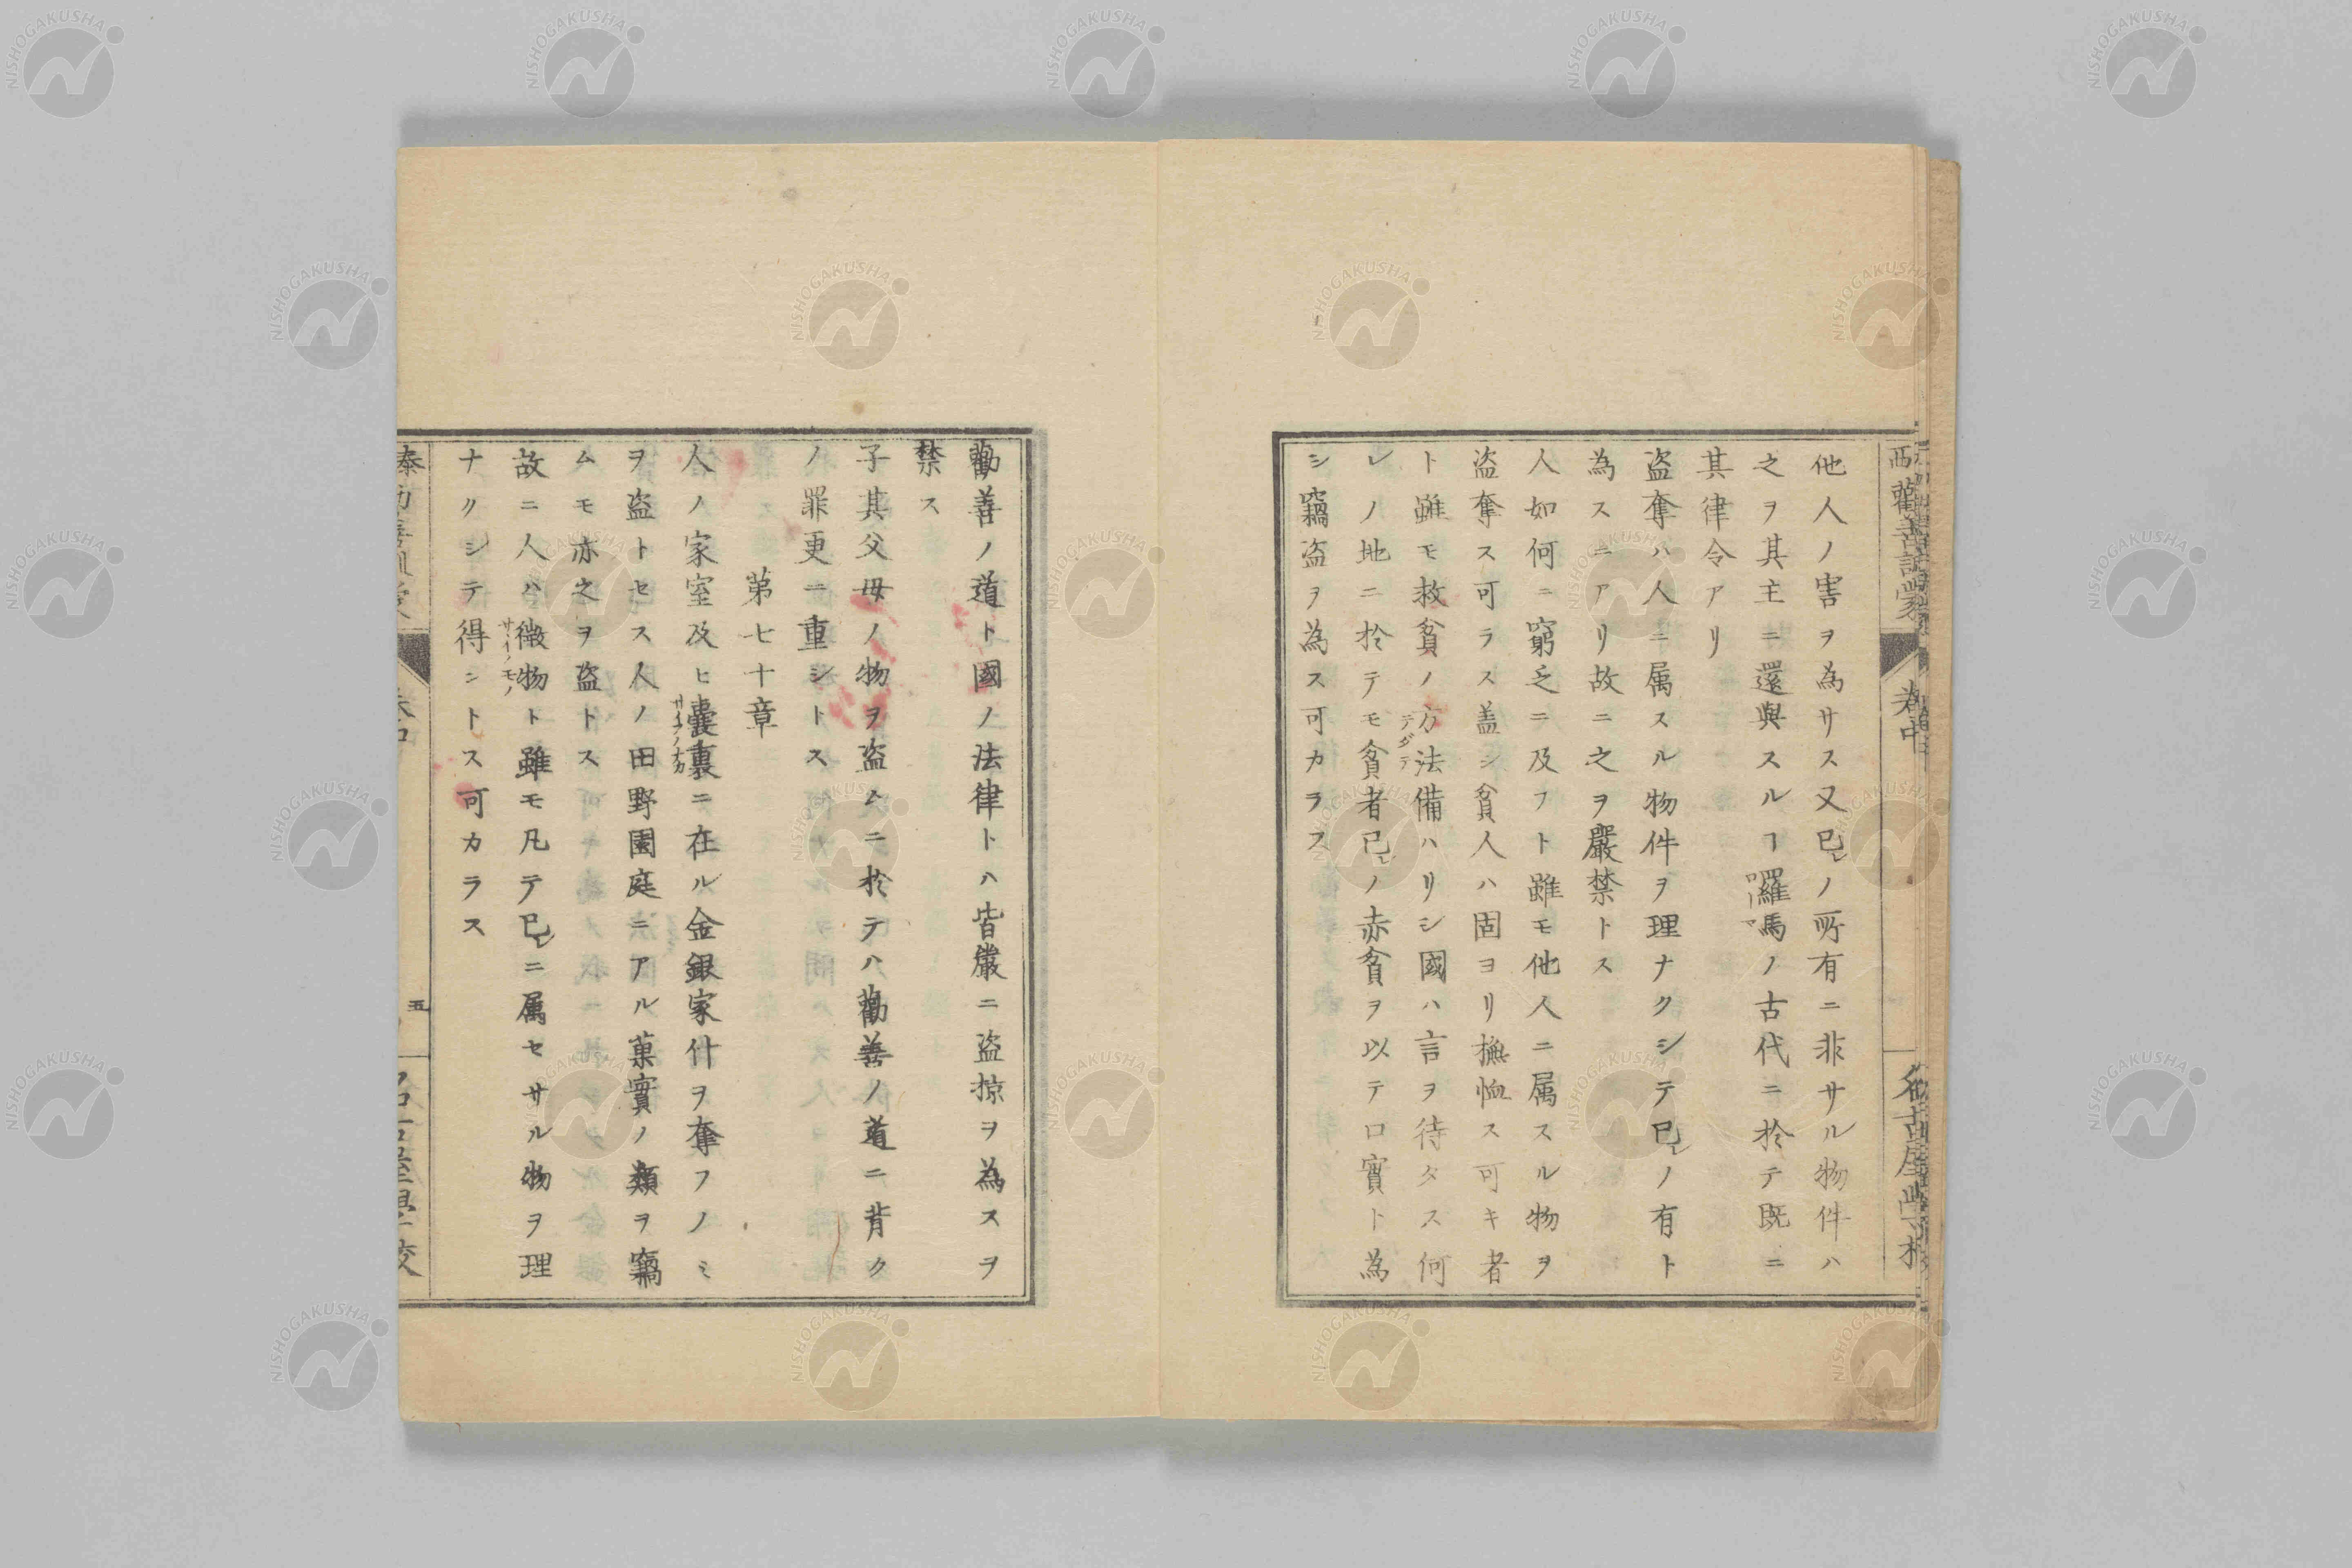 他人ノ害ヲ為サス又已レノ所有ニ非サル物件ハ
之ヲ其主ニ還與スルヿ羅馬ノ古代ニ於テ既ニ
ローマ
其律令アリ
盗奪ハ人ニ属スル物件ヲ理ナクシテ已レノ有ト
為スニアリ故ニ之ヲ嚴禁トス
人如何ニ窮乏ニ及フト雖モ他人ニ属スル物ヲ
盗奪ス可ラス盖シ貧人ハ固ヨリ撫恤ス可キ者
ト雖モ救貧ノ方法備ハリシ國ハ言ヲ待タス何
テダテ
レノ地ニ於テモ貧者已レノ赤貧ヲ以テ口實ト為
シ竊盗ヲ為ス可カラス
勸善ノ道ト國ノ法律トハ皆嚴ニ盗掠ヲ為スヲ
禁ス
子其父母ノ物ヲ盗ムニ於テハ勸善ノ道ニ背ク
ノ罪更ニ重シトス
第七十章
人ノ家室及ヒ囊裏ニ在ル金銀家什ヲ奪フノミ
サイフノナカ
ヲ盗トセス人ノ田野園庭ニアル菓實ノ類ヲ竊
ムモ亦之ヲ盗トス
故ニ人ハ微物ト雖モ凡テ已レニ属セサル物ヲ理
サイノモノ
ナクシテ得ントス可カラス
五
NISHOGAKUSHA